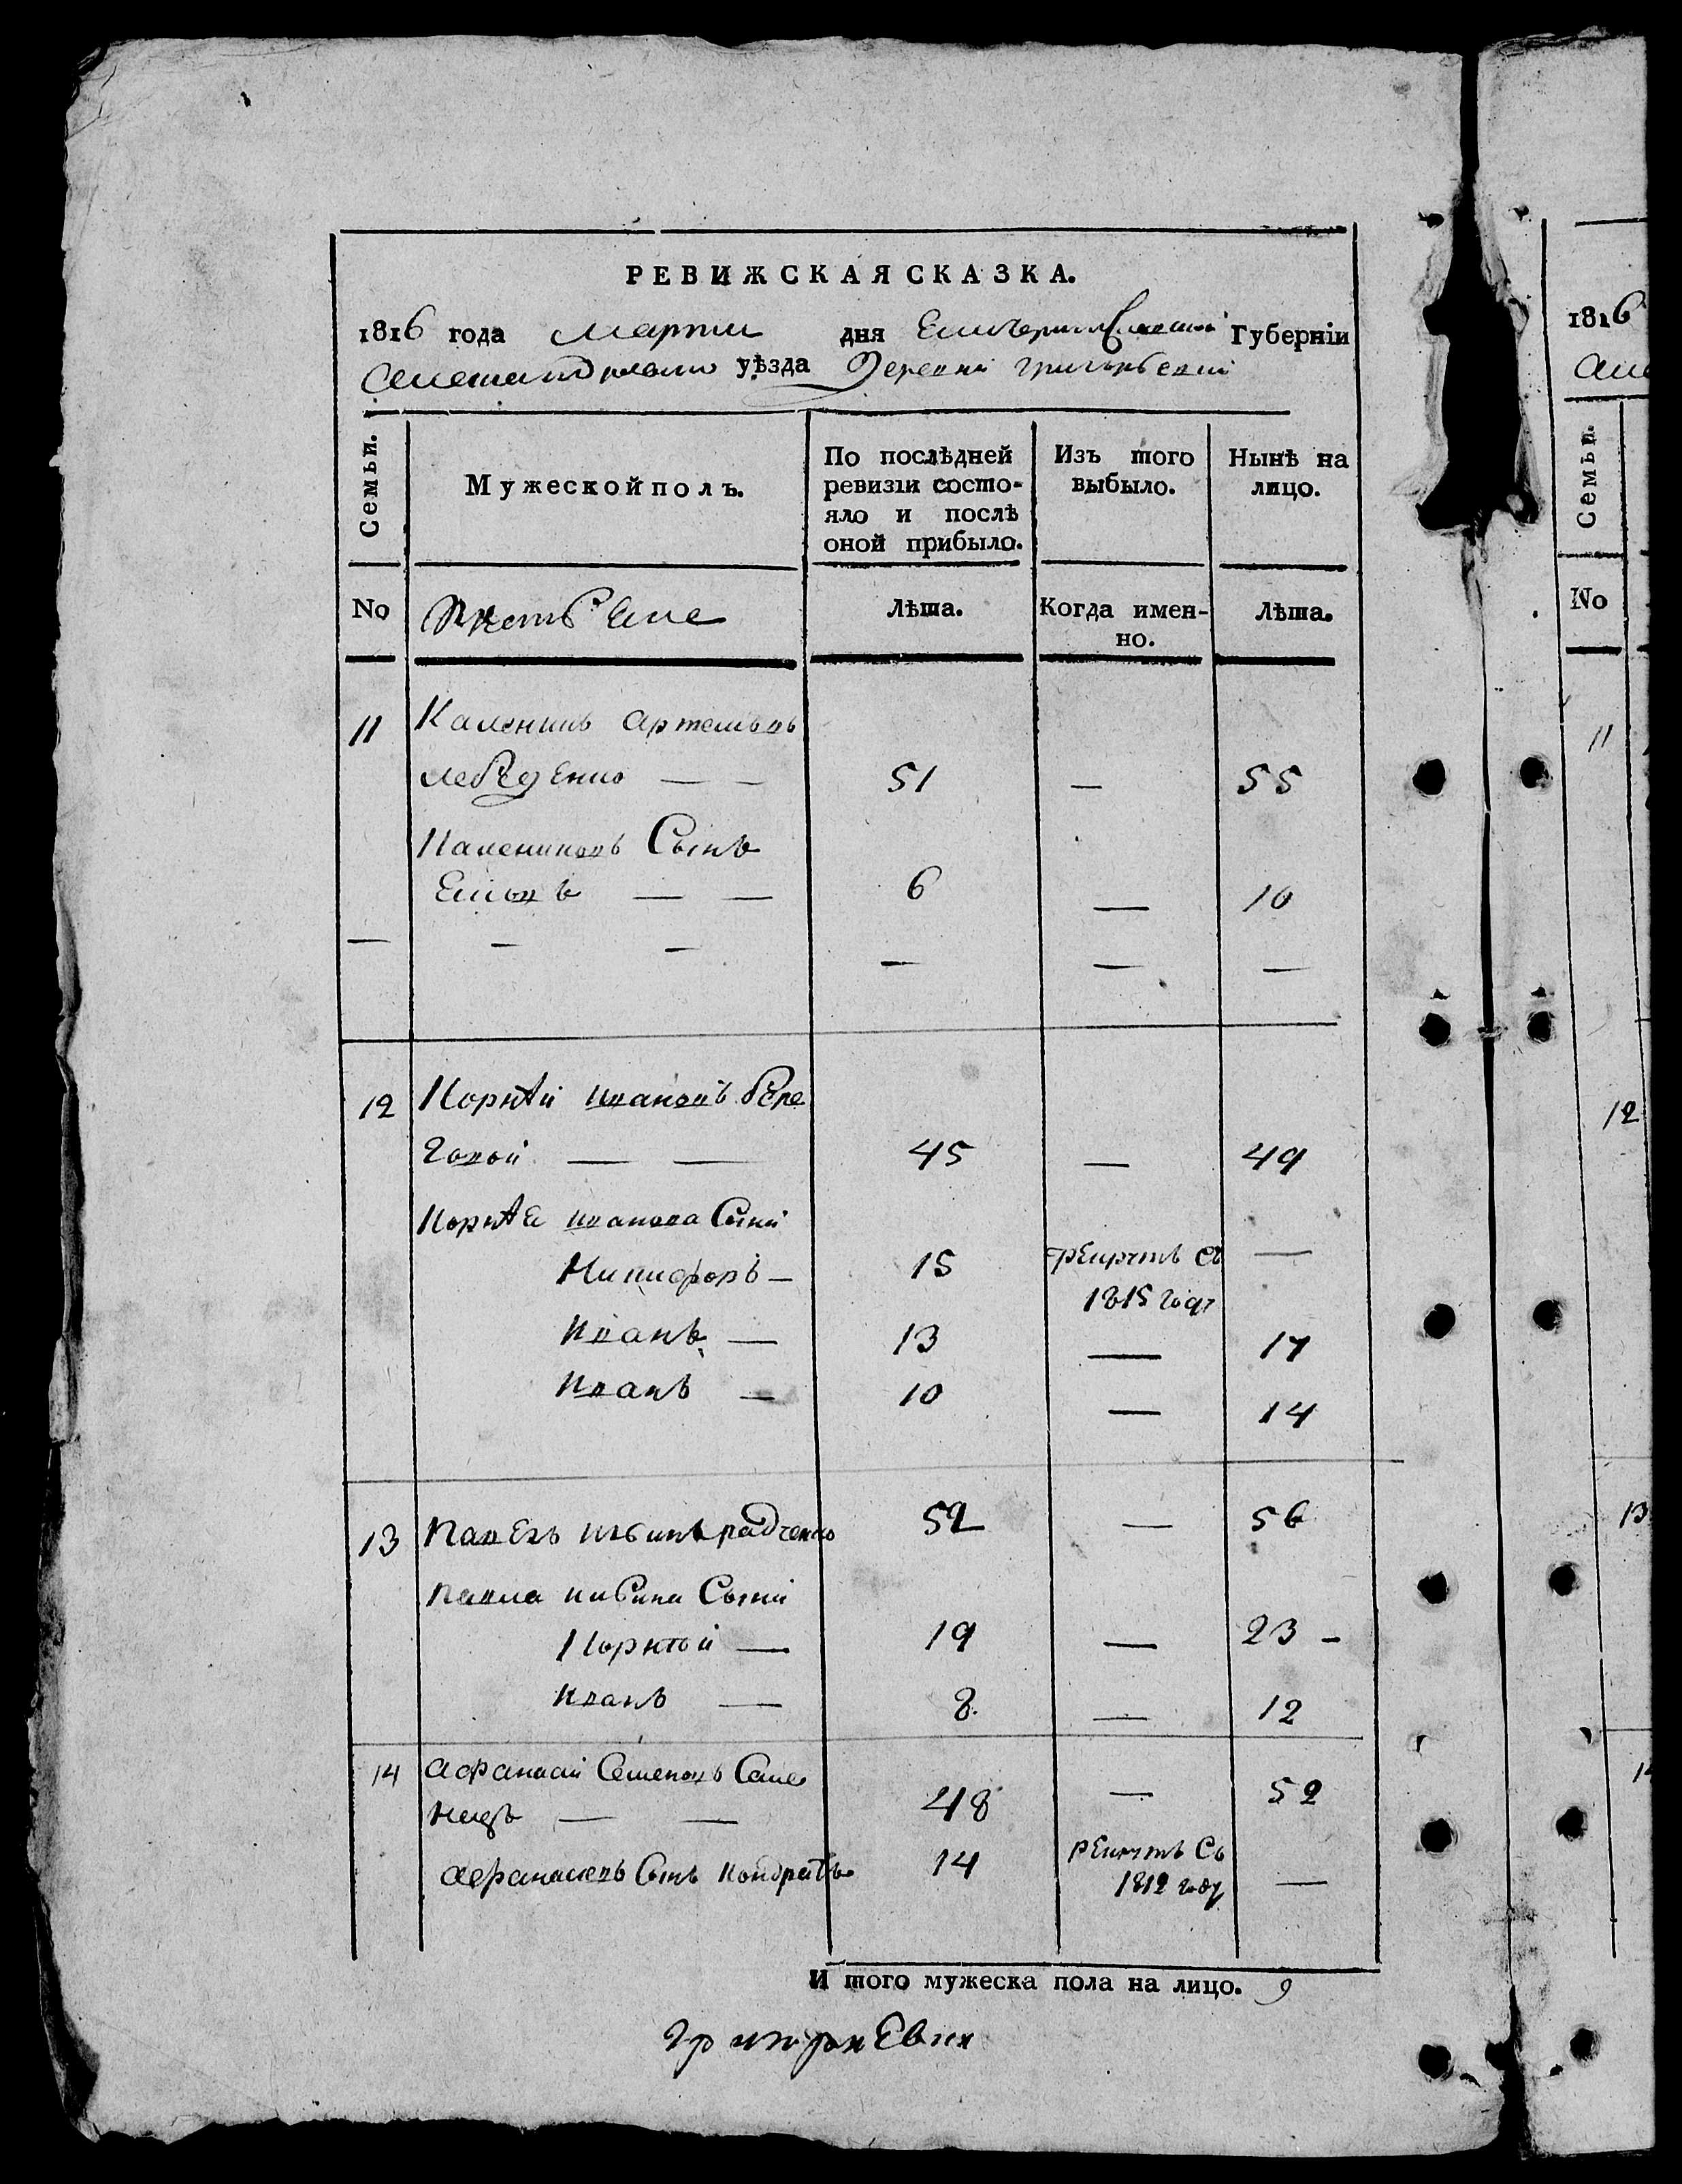 РЕВИЖСКАЯ СКАЗКА.
1816 года Марта дня Екатеринославской Губерніи
Александровского уѣзда Деревни григорьевки
Семьи.
Мужеской полъ.
По послѣдней ревизіи состо-
яло и послѣ оной прибыло.
Изъ того выбыло.
Нынѣ на лицо.
No
Лѣта.
Когда имен-
но.
Лѣта.
11 Каленикъ артемовъ
лебеденко — — 51 — 55
Калениковъ Сынъ
— — 6 — 10
— — — — — —
12 Корнѣй ивановъ бере
говой — — 45 — 49
Корнѣя иванова Сыни
Никифоръ — 15 рекрутъ съ —
1815 году
иванъ — 13 — 17
иванъ — 10 — 14
13 павелъ радченко 52 — 56
павла Сыни
Корнѣй — 19 — 23 —
иванъ — 8. — 12
14 афанасий Семеновъ Саме
нецъ — — 48 — 52
афанасиевъ Сынъ Кондратъ 14 рекрутъ Съ
1812 году —
И того мужеска пола на лицо. 9
1816
Семьи.
No
11
12
13
14